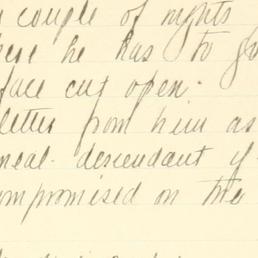 couple of nights
here he has to go
face cut open.
letter from him as
neal descendant if
compromised on the